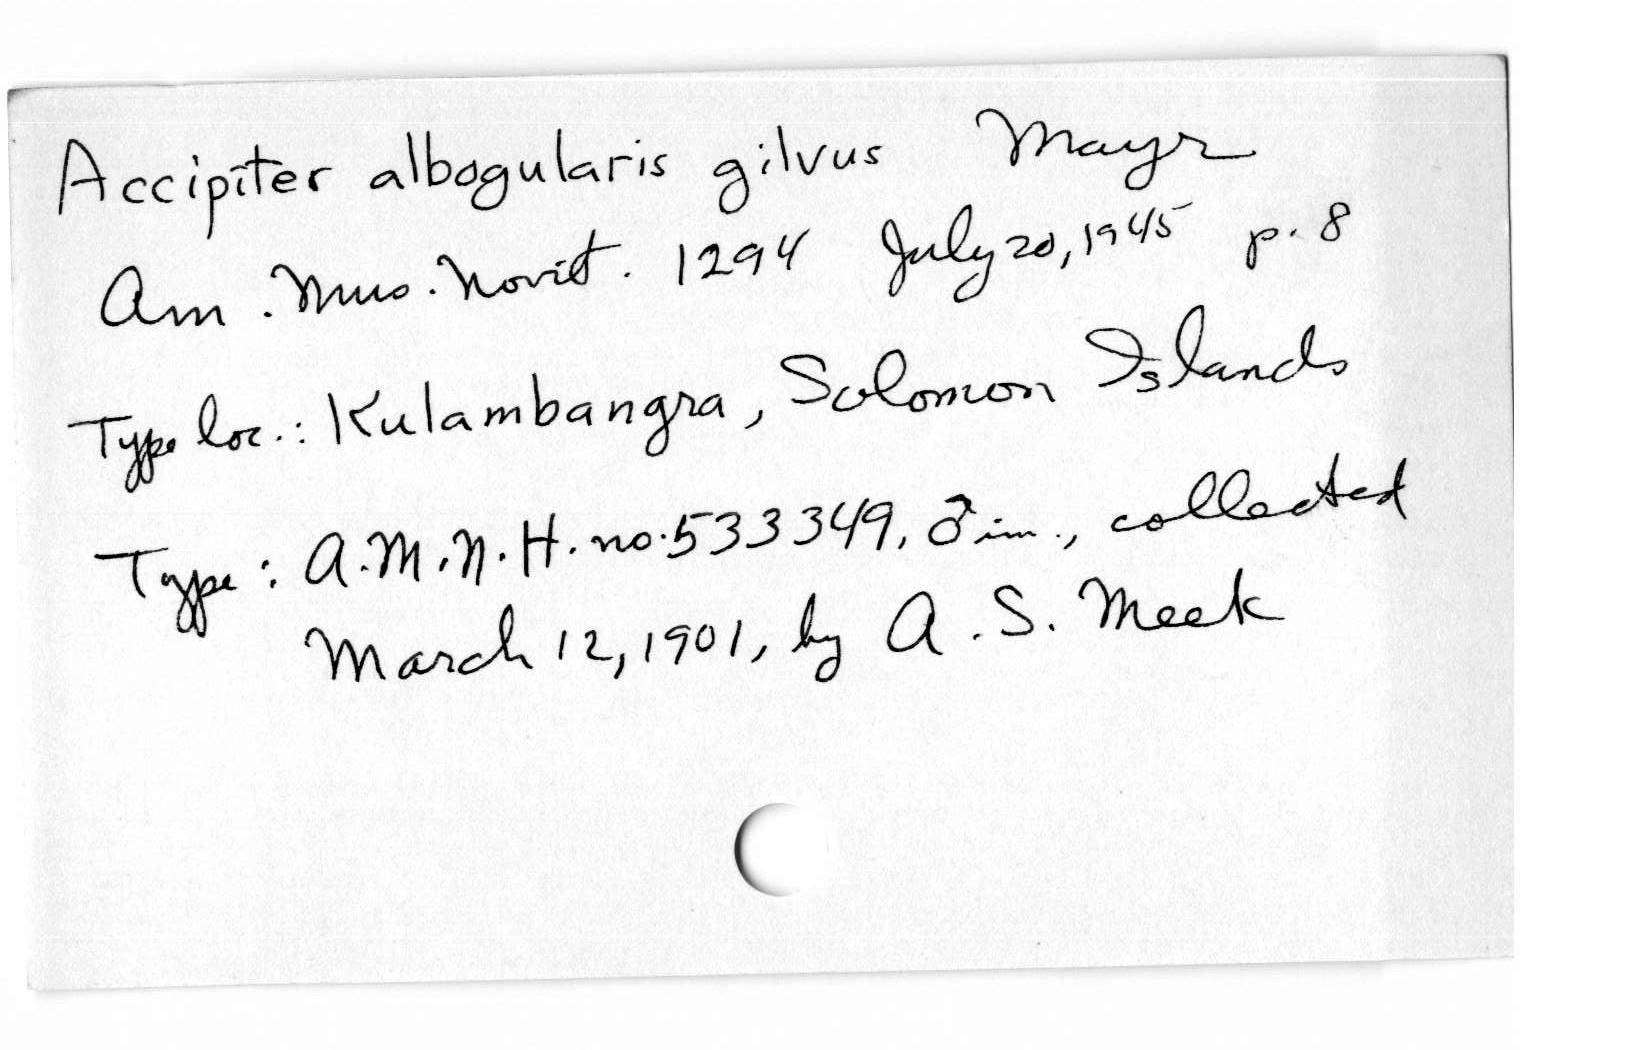 Accipiter albogularis gilvus Mayr
Am. Mus. Novit. 1294 July 20, 1945 p. 8
Type loc.: Kulambangra, Solomon Islands
Type: A.M.N.H. no. 533349, ♂ im., collected
March 12, 1901, by A. S. Meek